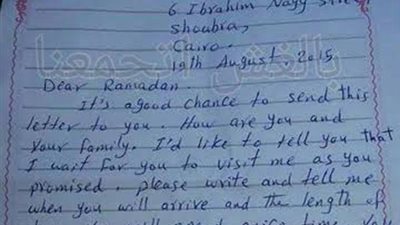 6 Ibrahim Nagy
Shoubra,
Cairo.
19th August, 2015
بالغش اتجمعنا
Dear Ramadan.
It's agood chance to send this
letter to you. How are you and
Your family. I'd like to tell you that
I wait for you to visit me as you
promised. please write and tell me
when you will arrive and the length of